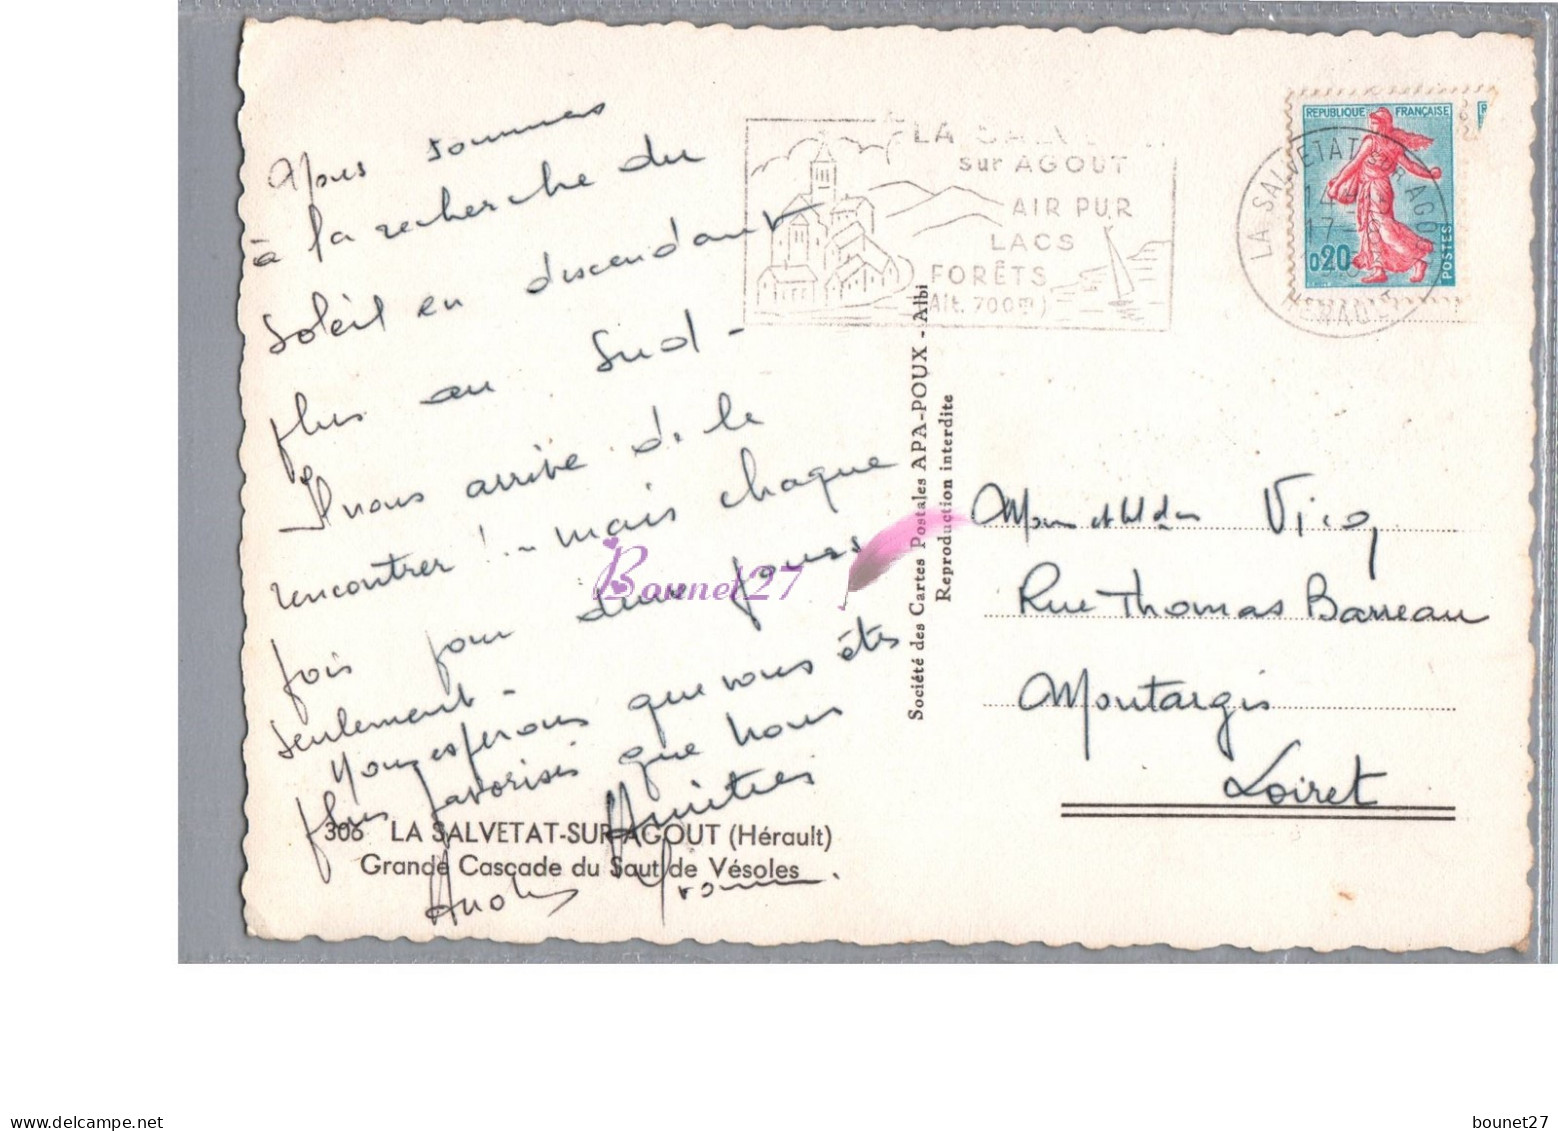 Nous sommes
à la recherche du
soleil en descendant
plus au Sud -
Il nous arrive de le
rencontrer ! - mais chaque
fois pour deux jours
seulement -
Nous espérons que vous êtes
plus favorisés que nous
Amitiés
306 LA SALVETAT-SUR-AGOUT (Hérault)
Grande Cascade du Saut de Vésoles
LA SALV
sur AGOUT
AIR PUR
LACS
FORÊTS
(Alt. 700m)
REPUBLIQUE FRANÇAISE
0,20
POSTES
LA SALVETAT SUR AGOUT
HERAULT
Société des Cartes Postales APA-POUX - Albi
Reproduction interdite
Bounet27
Rue Thomas Barreau
Montargis
Loiret
delcampe.net
bounet27